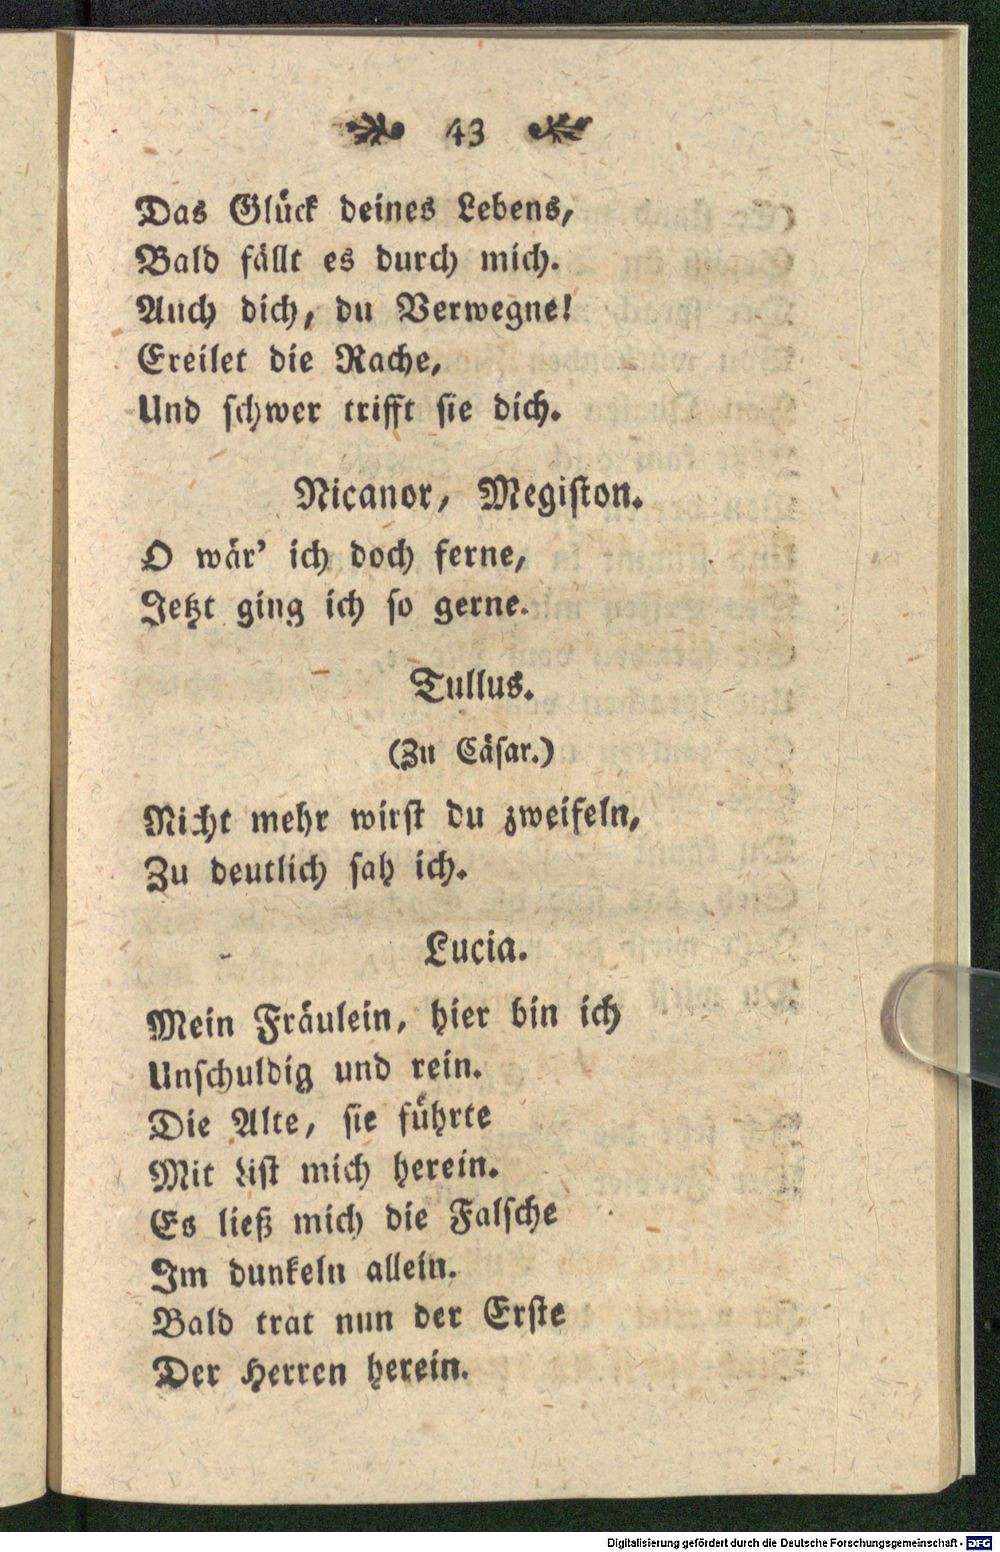 43
Das Glück deines Lebens,
Bald fällt es durch mich.
Auch dich, du Verwegne!
Ereilet die Rache,
Und schwer trifft sie dich.
Nicanor, Megiston.
O wär' ich doch ferne,
Jetzt ging ich so gerne.
Tullus.
(Zu Cäsar.)
Nicht mehr wirst du zweifeln,
Zu deutlich sah ich.
Lucia.
Mein Fräulein, hier bin ich
Unschuldig und rein.
Die Alte, sie führte
Mit List mich herein.
Es ließ mich die Falsche
Im dunkeln allein.
Bald trat nun der Erste
Der Herren herein.
Digitalisierung gefördert durch die Deutsche Forschungsgemeinschaft - DFG